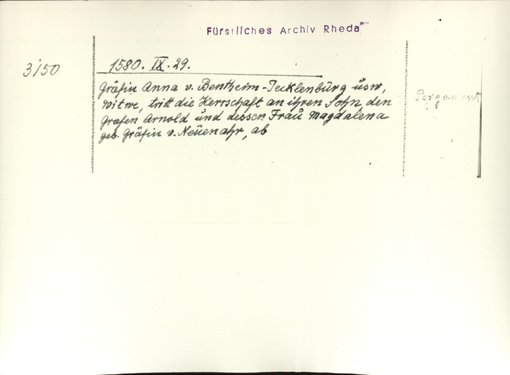 Fürstliches Archiv Rheda
3150
1580. IX. 29.
Gräfin Anna v. Bentheim-Tecklenburg usw,
Witwe, tritt die Herrschaft an ihren Sohn, den
Grafen Arnold und dessen Frau Magdalena
geb. Gräfin v. Neuenahr, ab
Pergament